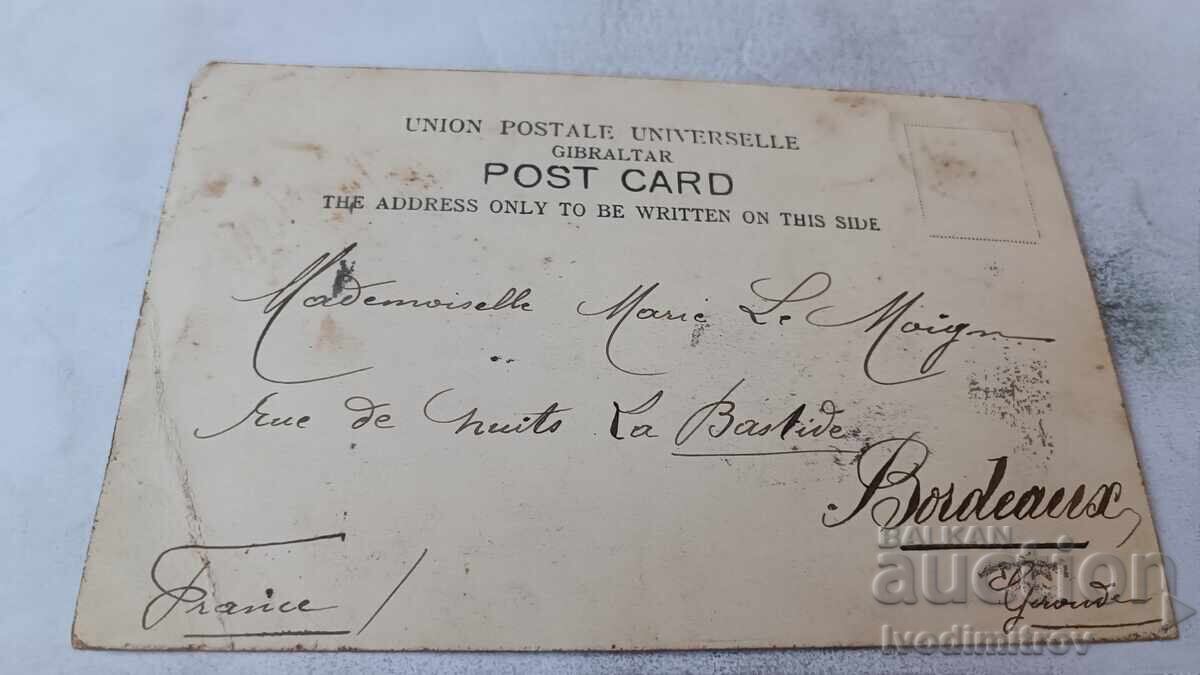 UNION POSTALE UNIVERSELLE
GIBRALTAR
POST CARD
THE ADDRESS ONLY TO BE WRITTEN ON THIS SIDE
Mademoiselle Marie Le Moign
Rue de Nuits La Bastide
Bordeaux
Gironde
France
BALKAN
auction
Ivodimitrov